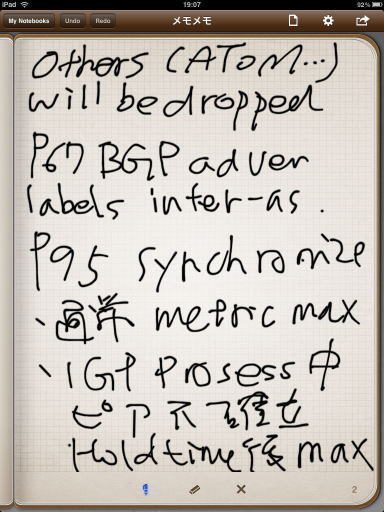 iPad 19:07 92%
My Notebooks Undo Redo メモメモ
Others (AToM...)
will be dropped
P67 BGP adver
labels inter-as.
P95 synchronize
、通常 metric max
、IGP Prosess中
ピア不確立
Holdtime後max
2